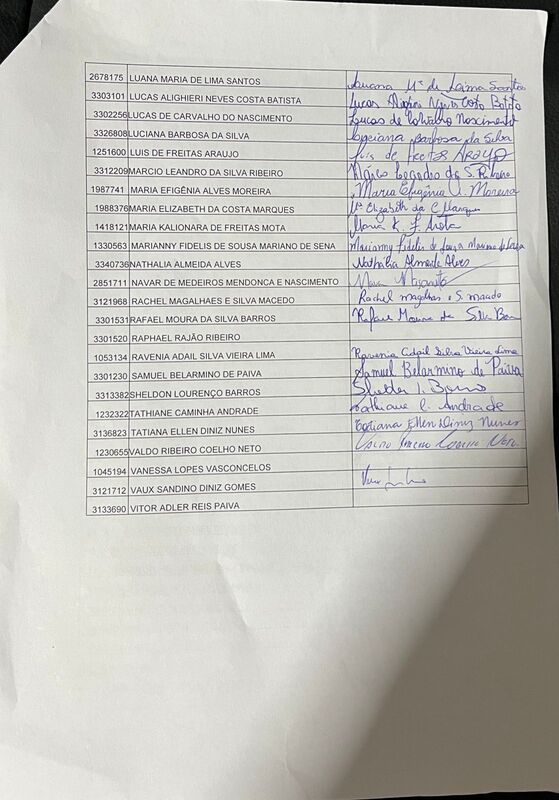 2678175 LUANA MARIA DE LIMA SANTOS Luana Mª de Lima Santos
3303101 LUCAS ALIGHIERI NEVES COSTA BATISTA Lucas Neves Costa Batista
3302256 LUCAS DE CARVALHO DO NASCIMENTO Lucas de Carvalho Nascimento
3326808 LUCIANA BARBOSA DA SILVA Luciana Barbosa da Silva
1251600 LUIS DE FREITAS ARAUJO Luis de Freitas Araujo
3312209 MARCIO LEANDRO DA SILVA RIBEIRO Márcio Leandro da S. Ribeiro
1987741 MARIA EFIGÊNIA ALVES MOREIRA Maria Efigênia A. Moreira
1988376 MARIA ELIZABETH DA COSTA MARQUES Mª Elizabeth da C Marques
1418121 MARIA KALIONARA DE FREITAS MOTA Maria K. F. Mota
1330563 MARIANNY FIDELIS DE SOUSA MARIANO DE SENA Marianny Fidelis de Sousa Mariano de Sena
3340736 NATHALIA ALMEIDA ALVES Nathalia Almeida Alves
2851711 NAVAR DE MEDEIROS MENDONCA E NASCIMENTO
3121968 RACHEL MAGALHAES E SILVA MACEDO Rachel magalhaes e S. macedo
3301531 RAFAEL MOURA DA SILVA BARROS Rafael Moura da Silva
3301520 RAPHAEL RAJÃO RIBEIRO
1053134 RAVENIA ADAIL SILVA VIEIRA LIMA Ravenia Adail Silva Vieira Lima
3301230 SAMUEL BELARMINO DE PAIVA Samuel Belarmino de Paiva
3313382 SHELDON LOURENÇO BARROS
1232322 TATHIANE CAMINHA ANDRADE Tathiane C. Andrade
3136823 TATIANA ELLEN DINIZ NUNES Tatiana Ellen Diniz Nunes
1230655 VALDO RIBEIRO COELHO NETO Valdo Ribeiro Coelho Neto
1045194 VANESSA LOPES VASCONCELOS
3121712 VAUX SANDINO DINIZ GOMES Vaux
3133690 VITOR ADLER REIS PAIVA